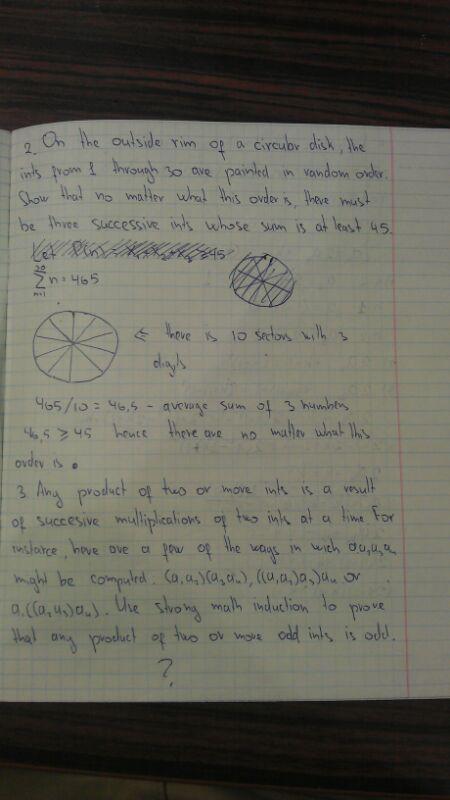 2. On the outside rim of a circular disk, the
ints from 1 through 30 are painted in random order.
Show that no matter what this order is, there must
be three successive ints whose sum is at least 45.
30
∑ n = 465
n=1
⇐ there is 10 sectors with 3
digits
465/10 = 46,5 - average sum of 3 numbers
46,5 ≥ 45 hence there are no matter what this
order is.
3. Any product of two or more ints is a result
of succesive multiplications of two ints at a time. For
instance, here are a few of the ways in wich a₁a₂a₃a₄
might be computed. (a₁a₂)(a₃a₄), ((a₁a₂)a₃)a₄ or
a₁((a₂a₃)a₄). Use strong math induction to prove
that any product of two or more odd ints is odd.
?